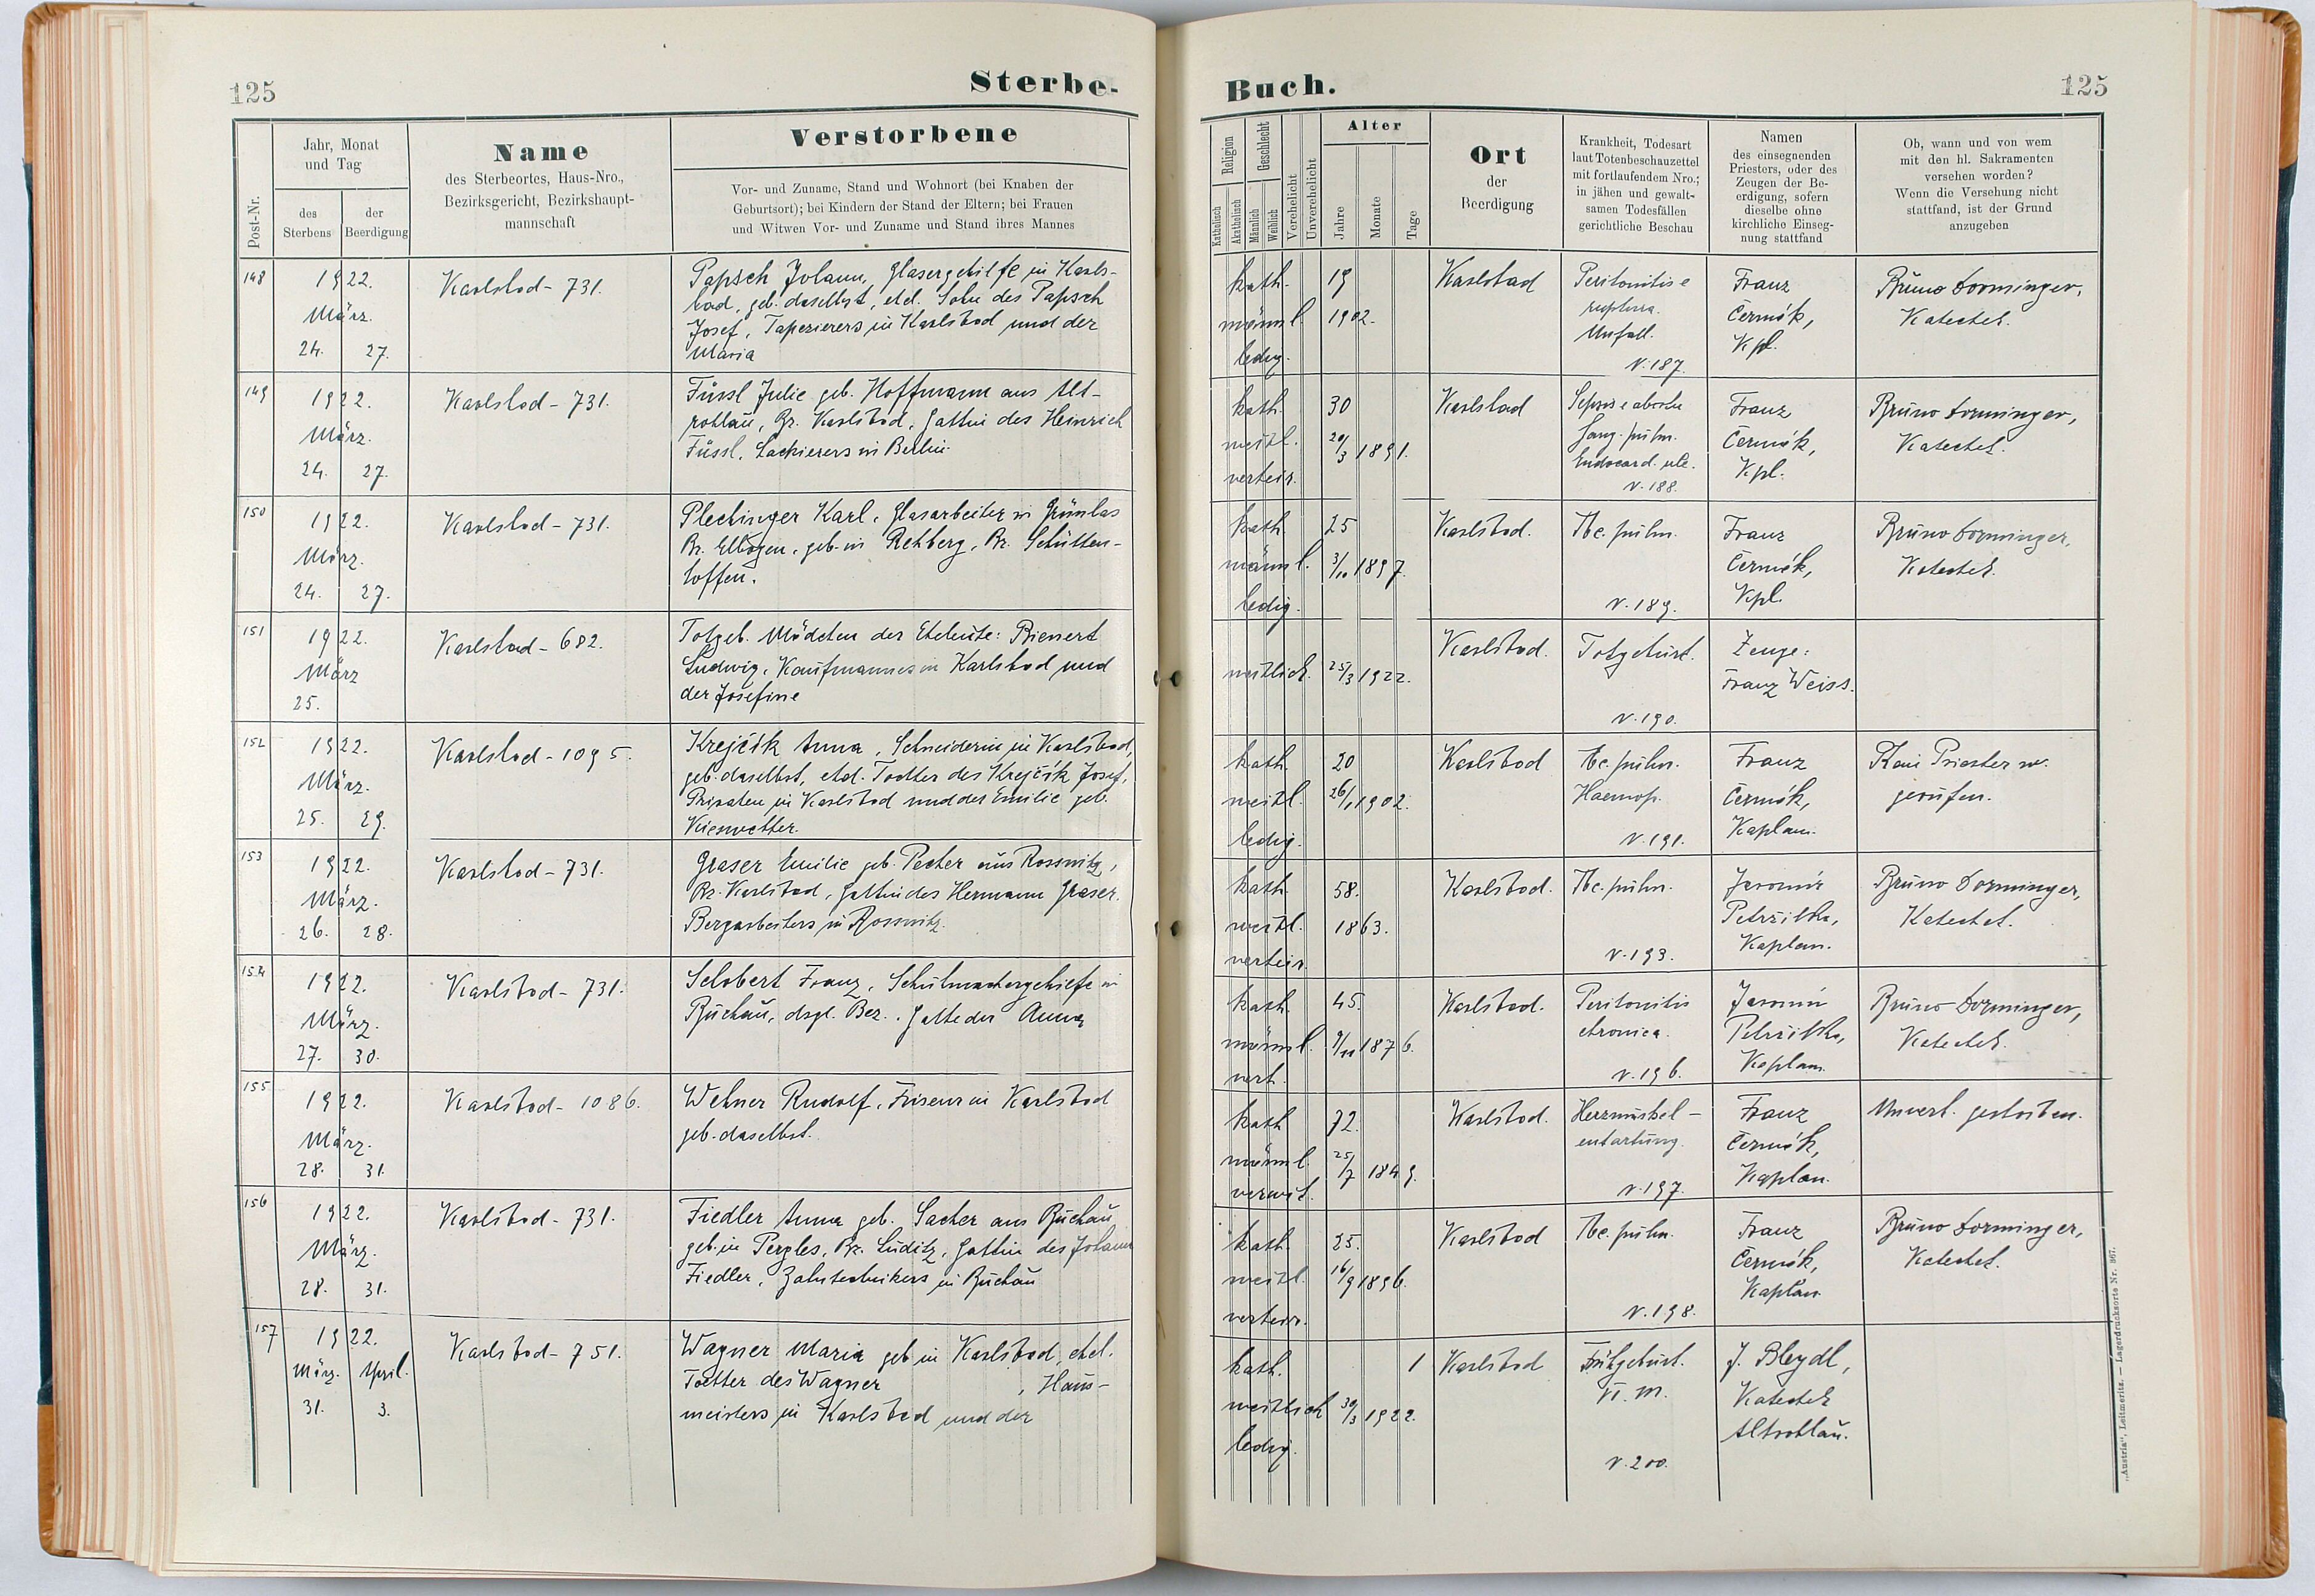 125
Sterbe-
Post-Nr.
Jahr, Monat
und Tag
des
Sterbens
der
Beerdigung
Name
des Sterbeortes, Haus-Nro.,
Bezirksgericht, Bezirkshaupt-
mannschaft
Verstorbene
Vor- und Zuname, Stand und Wohnort (bei Knaben der
Geburtsort); bei Kindern der Stand der Eltern; bei Frauen
und Witwen Vor- und Zuname und Stand ihres Mannes
148
1922.
März.
24. 27.
Karlsbad - 731.
Papsch Johann, Glasergehilfe in Karls-
bad, geb. daselbst, ehel. Sohn des Papsch
Josef, Tapezierers in Karlsbad und der
Maria
149
1922.
März.
24. 27.
Karlsbad - 731.
Füssl Julie geb. Hoffmann aus Alt-
rohlau, Bz. Karlsbad, Gattin des Heinrich
Füssl, Lackierers in Berlin.
150
1922.
März.
24. 27.
Karlsbad - 731.
Plechinger Karl, Glasarbeiter in Grünlas
Bz. Elbogen, geb. in Rehberg, Bz. Schütten-
hoffen.
151
1922.
März
25.
Karlsbad - 682.
Totgeb. Mädchen der Eheleute: Bienert
Ludwig, Kaufmannes in Karlsbad und
der Josefine
152
1922.
März.
25. 29.
Karlsbad - 1095.
Krejčík Anna, Schneiderin in Karlsbad,
geb. daselbst, ehel. Tochter des Krejčík Josef,
Privaten in Karlsbad und der Emilie geb.
Kiesewetter.
153
1922.
März.
26. 28.
Karlsbad - 731.
Graser Emilie geb. Pecher aus Rossnitz,
Bz. Karlsbad, Gattin des Hermann Graser.
Bergarbeiters in Rossnitz.
154
1922.
März.
27. 30.
Karlsbad - 731.
Schobert Franz, Schuhmachergehilfe in
Buchau, dsgl. Bez., Gatte der Anna
155
1922.
März.
28. 31.
Karlsbad - 1086.
Wehner Rudolf, Friseur in Karlsbad
geb. daselbst.
156
1922.
März.
28. 31.
Karlsbad - 731.
Fiedler Anna geb. Sacher aus Buchau
geb. in Pergles, Bz. Luditz, Gattin des Johann
Fiedler, Zahntechnikers in Buchau
157
1922.
März. April.
31. 3.
Karlsbad - 751.
Wagner Maria geb. in Karlsbad, ehel.
Tochter des Wagner , Haus-
meisters in Karlsbad und der
Buch.
125
Religion
Katholisch
Akatholisch
Geschlecht
Männlich
Weiblich
Verehelicht
Unverehelicht
Alter
Jahre
Monate
Tage
Ort
der
Beerdigung
Krankheit, Todesart
laut Totenbeschauzettel
mit fortlaufendem Nro.;
in jähen und gewalt-
samen Todesfällen
gerichtliche Beschau
Namen
des einsegnenden
Priesters, oder des
Zeugen der Be-
erdigung, sofern
dieselbe ohne
kirchliche Einseg-
nung stattfand
Ob, wann und von wem
mit den hl. Sakramenten
versehen worden?
Wenn die Versehung nicht
stattfand, ist der Grund
anzugeben
kath.
männl.
ledig.
19
1902.
Karlsbad
Peritonitis e
ruptura.
Unfall.
N. 187.
Franz
Čermák,
Kpl.
Bruno Dorminger,
Katechet.
kath.
weibl.
verheir.
30
20/3 1891.
Karlsbad
Sepsis e abortu
Gang. pulm.
Endocard. ulc.
N. 188.
Franz
Čermák,
Kpl.
Bruno Dorminger,
Katechet.
kath.
männl.
ledig.
25
3/10 1897.
Karlsbad.
Tbc. pulm.
N. 189.
Franz
Čermák,
Kpl.
Bruno Dorminger,
Katechet.
weiblich.
25/3 1922.
Karlsbad.
Totgeburt.
N. 190.
Zeuge:
Franz Weiss.
kath.
weibl.
ledig.
20
26/1 1902.
Karlsbad
Tbc. pulm.
Haemop.
N. 191.
Franz
Čermák,
Kaplan.
Kein Priester w.
gerufen.
kath.
weibl.
verheir.
58.
1863.
Karlsbad.
Tbc. pulm.
N. 193.
Jaromír
Petržilka,
Kaplan.
Bruno Dorminger,
Katechet.
kath.
männl.
verh.
45.
9/11 1876.
Karlsbad.
Peritonitis
chronica.
N. 196.
Jaromír
Petržilka,
Kaplan.
Bruno Dorminger,
Katechet.
kath.
männl.
verwit.
72.
25/7 1849.
Karlsbad.
Herzmuskel-
entartung.
N. 197.
Franz
Čermák,
Kaplan.
Unvers. gestorben.
kath.
weibl.
verheir.
25.
16/9 1896.
Karlsbad
Tbc. pulm.
N. 198.
Franz
Čermák,
Kaplan
Bruno Dorminger,
Katechet.
kath.
weiblich
ledig.
1
30/3 1922.
Karlsbad
Frühgeburt.
VI. M.
N. 200.
J. Bleydl,
Katechet
Altrohlau.
„Austria", Leitmeritz. — Lagerdrucksorte Nr. 367.